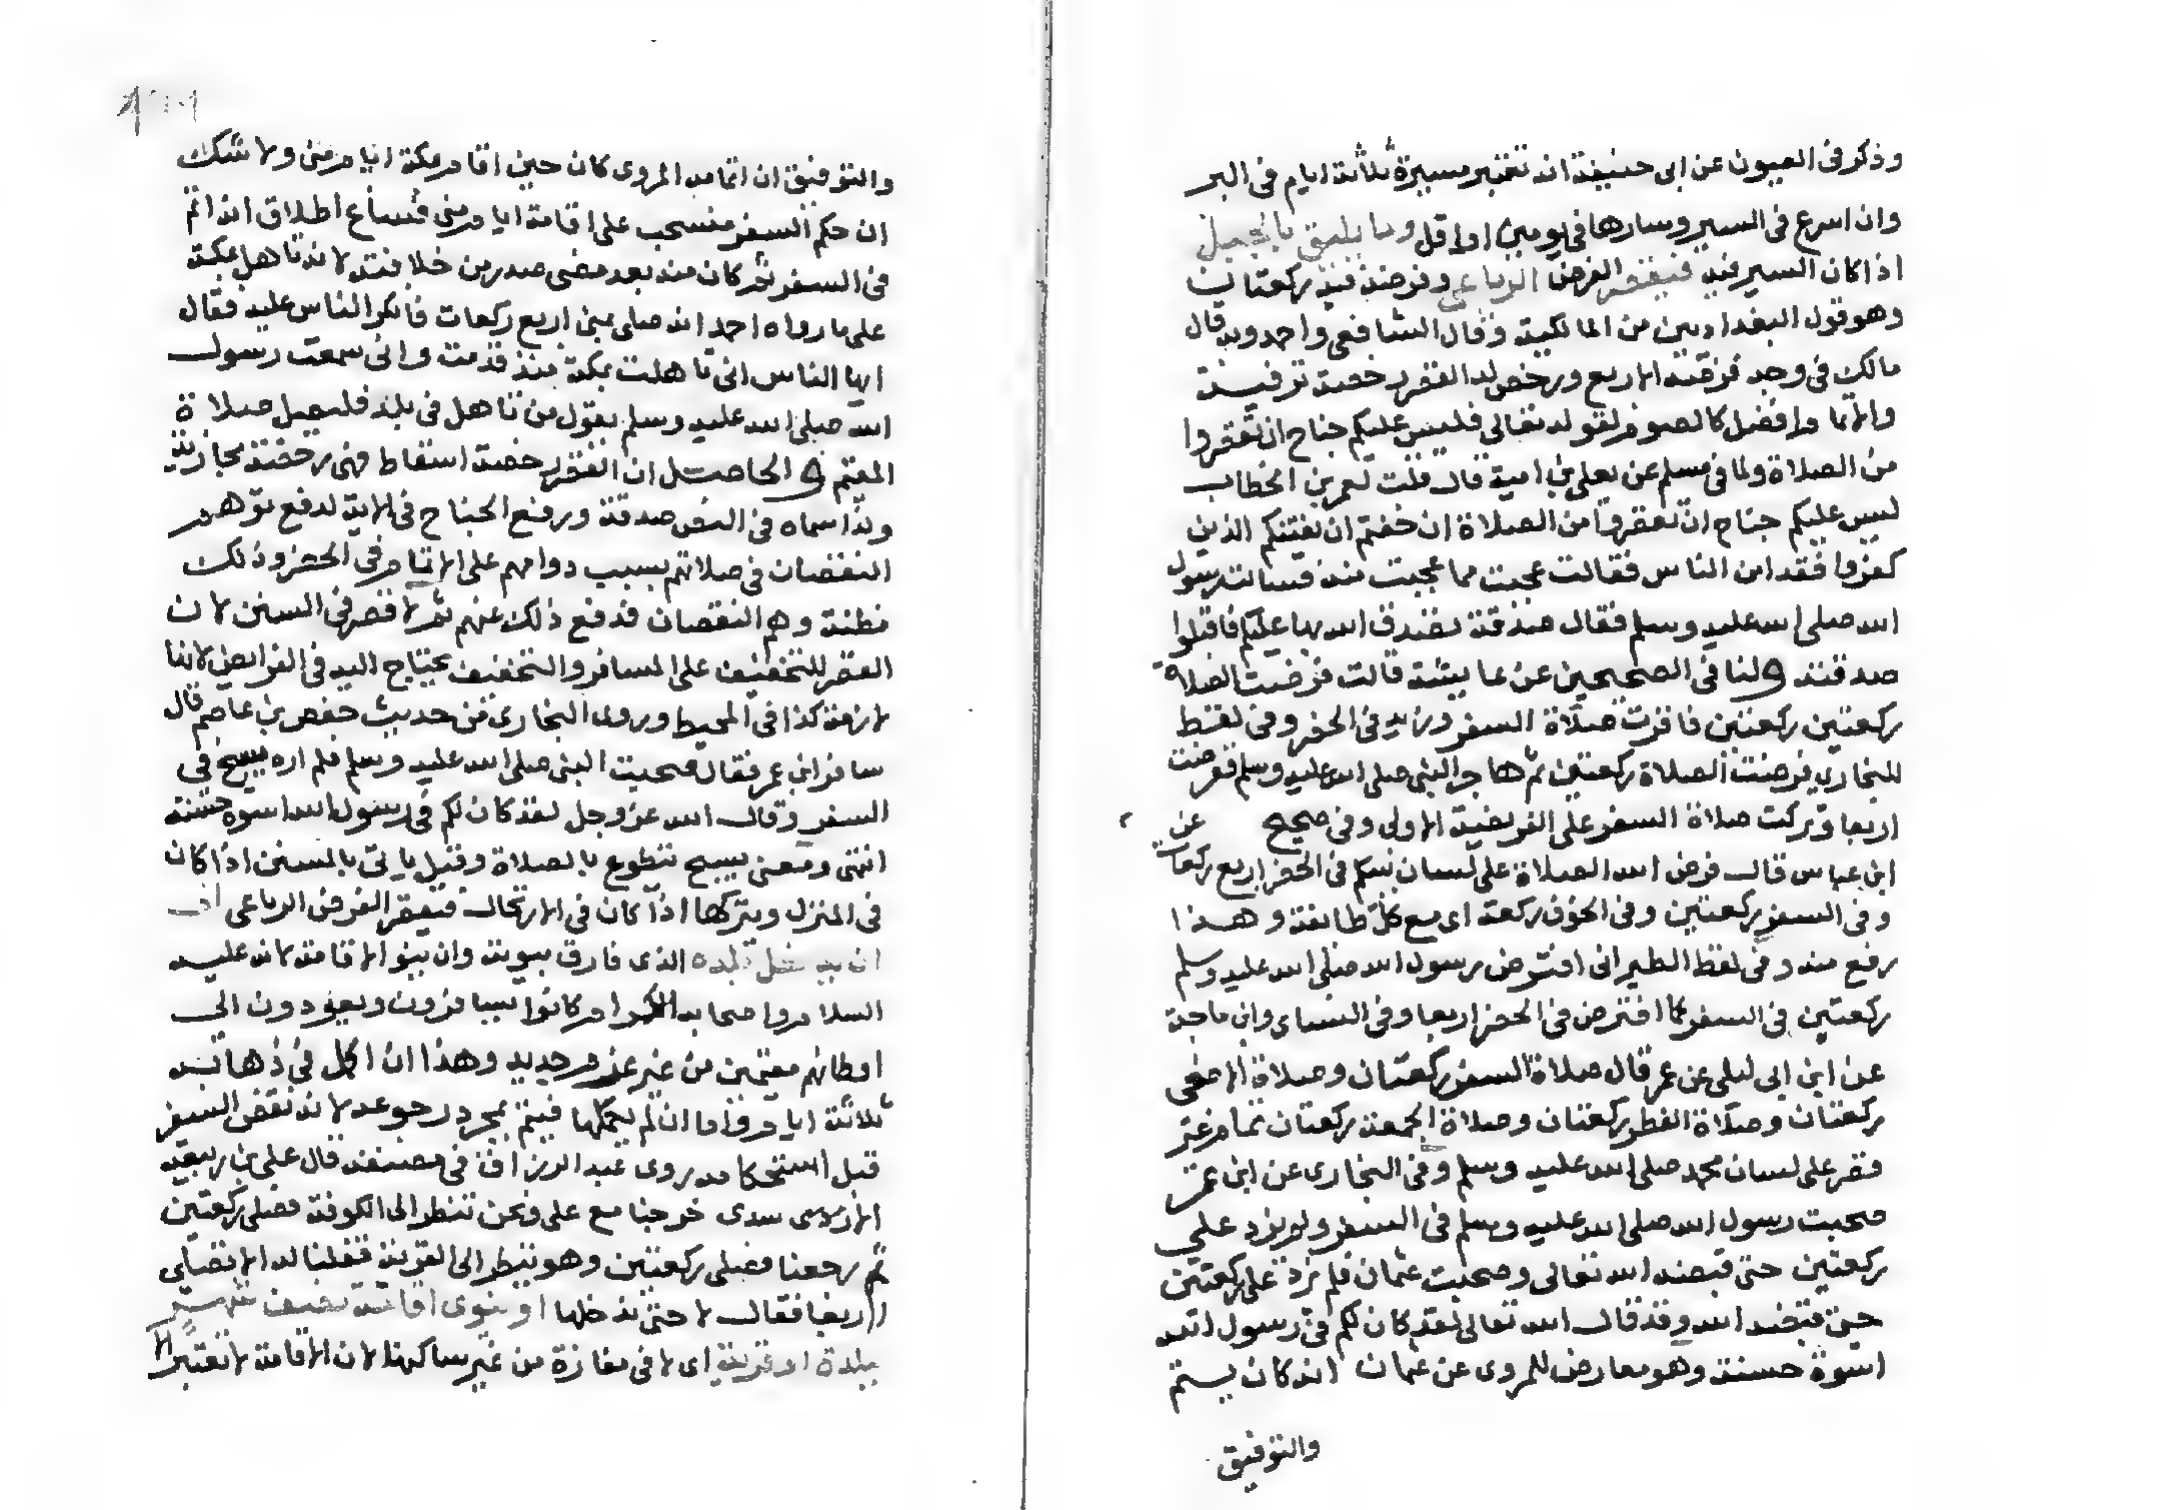 وذكر فى العيون عن ابى حنيفة انه تعتبر مسيرة ثلاثة ايام فى البر
وان اسرع فى السير وسارها فى يومين او اقل وما يليق بالجبل
اذا كان السير فيه فيقصر الفرض الرباعى وفرضه فيه ركعتان
وهو قول البغداديين من المالكية وقال الشافعى واحمد وبه قال
مالك فى وجه فرضه الاربع ورخص له القصر رخصة ترفيه
والاتمام افضل كالصوم لقوله تعالى فليس عليكم جناح ان تقصروا
من الصلاة ولما فى مسلم عن يعلى بن امية قال قلت لعمر بن الخطاب
ليس عليكم جناح ان تقصروا من الصلاة ان خفتم ان يفتنكم الذين
كفروا فقد امن الناس فقال عجبت مما عجبت منه فسالت رسول
الله صلى الله عليه وسلم فقال صدقة تصدق الله بها عليكم فاقبلوا
صدقته ولنا فى الصحيحين عن عايشة قالت فرضت الصلاة
ركعتين ركعتين فاقرت صلاة السفر وزيد فى الحضر وفى لفظ
للبخارى فرضت الصلاة ركعتين ثم هاجر النبى صلى الله عليه وسلم ففرضت
اربعا وتركت صلاة السفر على الفريضة الاولى وفى صحيح عن
ابن عباس قال فرض الله الصلاة على لسان نبيكم فى الحضر اربع ركعات
وفى السفر ركعتين وفى الخوف ركعة اى مع كل طائفة وهذا
رفع منه وفى لفظ الطبرانى افترض رسول الله صلى الله عليه وسلم
ركعتين فى السفر كما افترض فى الحضر اربعا وفى النساى وابن ماجة
عن ابن ابى ليلى عن عمر قال صلاة السفر ركعتان وصلاة الاضحى
ركعتان وصلاة الفطر ركعتان وصلاة الجمعة ركعتان تمام غير
قصر على لسان محمد صلى الله عليه وسلم وفى البخارى عن ابن عمر
صحبت رسول الله صلى الله عليه وسلم فى السفر ولم يزد على
ركعتين حتى قبضه الله تعالى وصحبت عثمان فلم يزد على ركعتين
حتى قبضه الله وقد قال الله تعالى لقد كان لكم فى رسول الله
اسوة حسنة وهو معارض للمروى عن عثمان انه كان يتم
والتوفيق
والتوفيق ان اتمامه المروى كان حين اقام بمكة ايام منى ولا شك
ان حكم السفر منسحب على اقامة ايام منى فساغ اطلاق انه اتم
فى السفر ثم كان منه بعد مضى صدر من خلافته لانه تاهل بمكة
على ما رواه احمد انه صلى بمنى اربع ركعات فانكر الناس عليه فقال
ايها الناس انى تاهلت بمكة منذ قدمت وانى سمعت رسول
الله صلى الله عليه وسلم يقول من تاهل فى بلد فليصل صلاة
المقيم والحاصل ان القصر رخصة اسقاط فهى رخصة مجازية
ولذا سماه فى النص صدقة ورفع الجناح فى الاية لدفع توهم
النقصان فى صلاتهم بسبب دوامهم على الاتمام فى الحضر وذلك
مظنة وهم النقصان فدفع ذلك عنهم ثم لا قصر فى السنن لان
القصر للتخفيف على المسافر والتخفيف يحتاج اليه فى الفرايض لانها
لازمة كذا فى المحيط وروى البخارى من حديث حفص بن عاصم قال
سافر ابن عمر فقال صحبت النبى صلى الله عليه وسلم فلم اره يسبح فى
السفر وقال الله عز وجل لقد كان لكم فى رسول الله اسوة حسنة
انتهى ومعنى يسبح تتطوع بالصلاة وقيل ياتى بالسنن اذا كان
فى المنزل ويتركها اذا كان فى الارتحال فيقصر الفرض الرباعى الى
ان يدخل بلده الذى فارق بيوته وان لم ينو الاقامة لانه عليه
السلام واصحابه الكرام كانوا يسافرون ويعودون الى
اوطانهم مقيمين من غير عزم جديد وهذا ان اكمل فى ذهابه
ثلاثة ايام واما ان لم يكملها فيتم بمجرد رجوعه لانه نقض السفر
قبل استحكامه روى عبد الرزاق فى مصنفه قال على بن ربيعة
الاسدى خرجنا مع على ونحن ننظر الى الكوفة فصلى ركعتين
ثم رجعنا فصلى ركعتين وهو ينظر الى القرية فقلنا له الا تصلى
اربعا فقال لا حتى ندخلها او ينوى اقامة نصف شهر
ببلدة او قرية اى لا فى مفازة من غير ساكنها لان الاقامة لا تعتبر الا